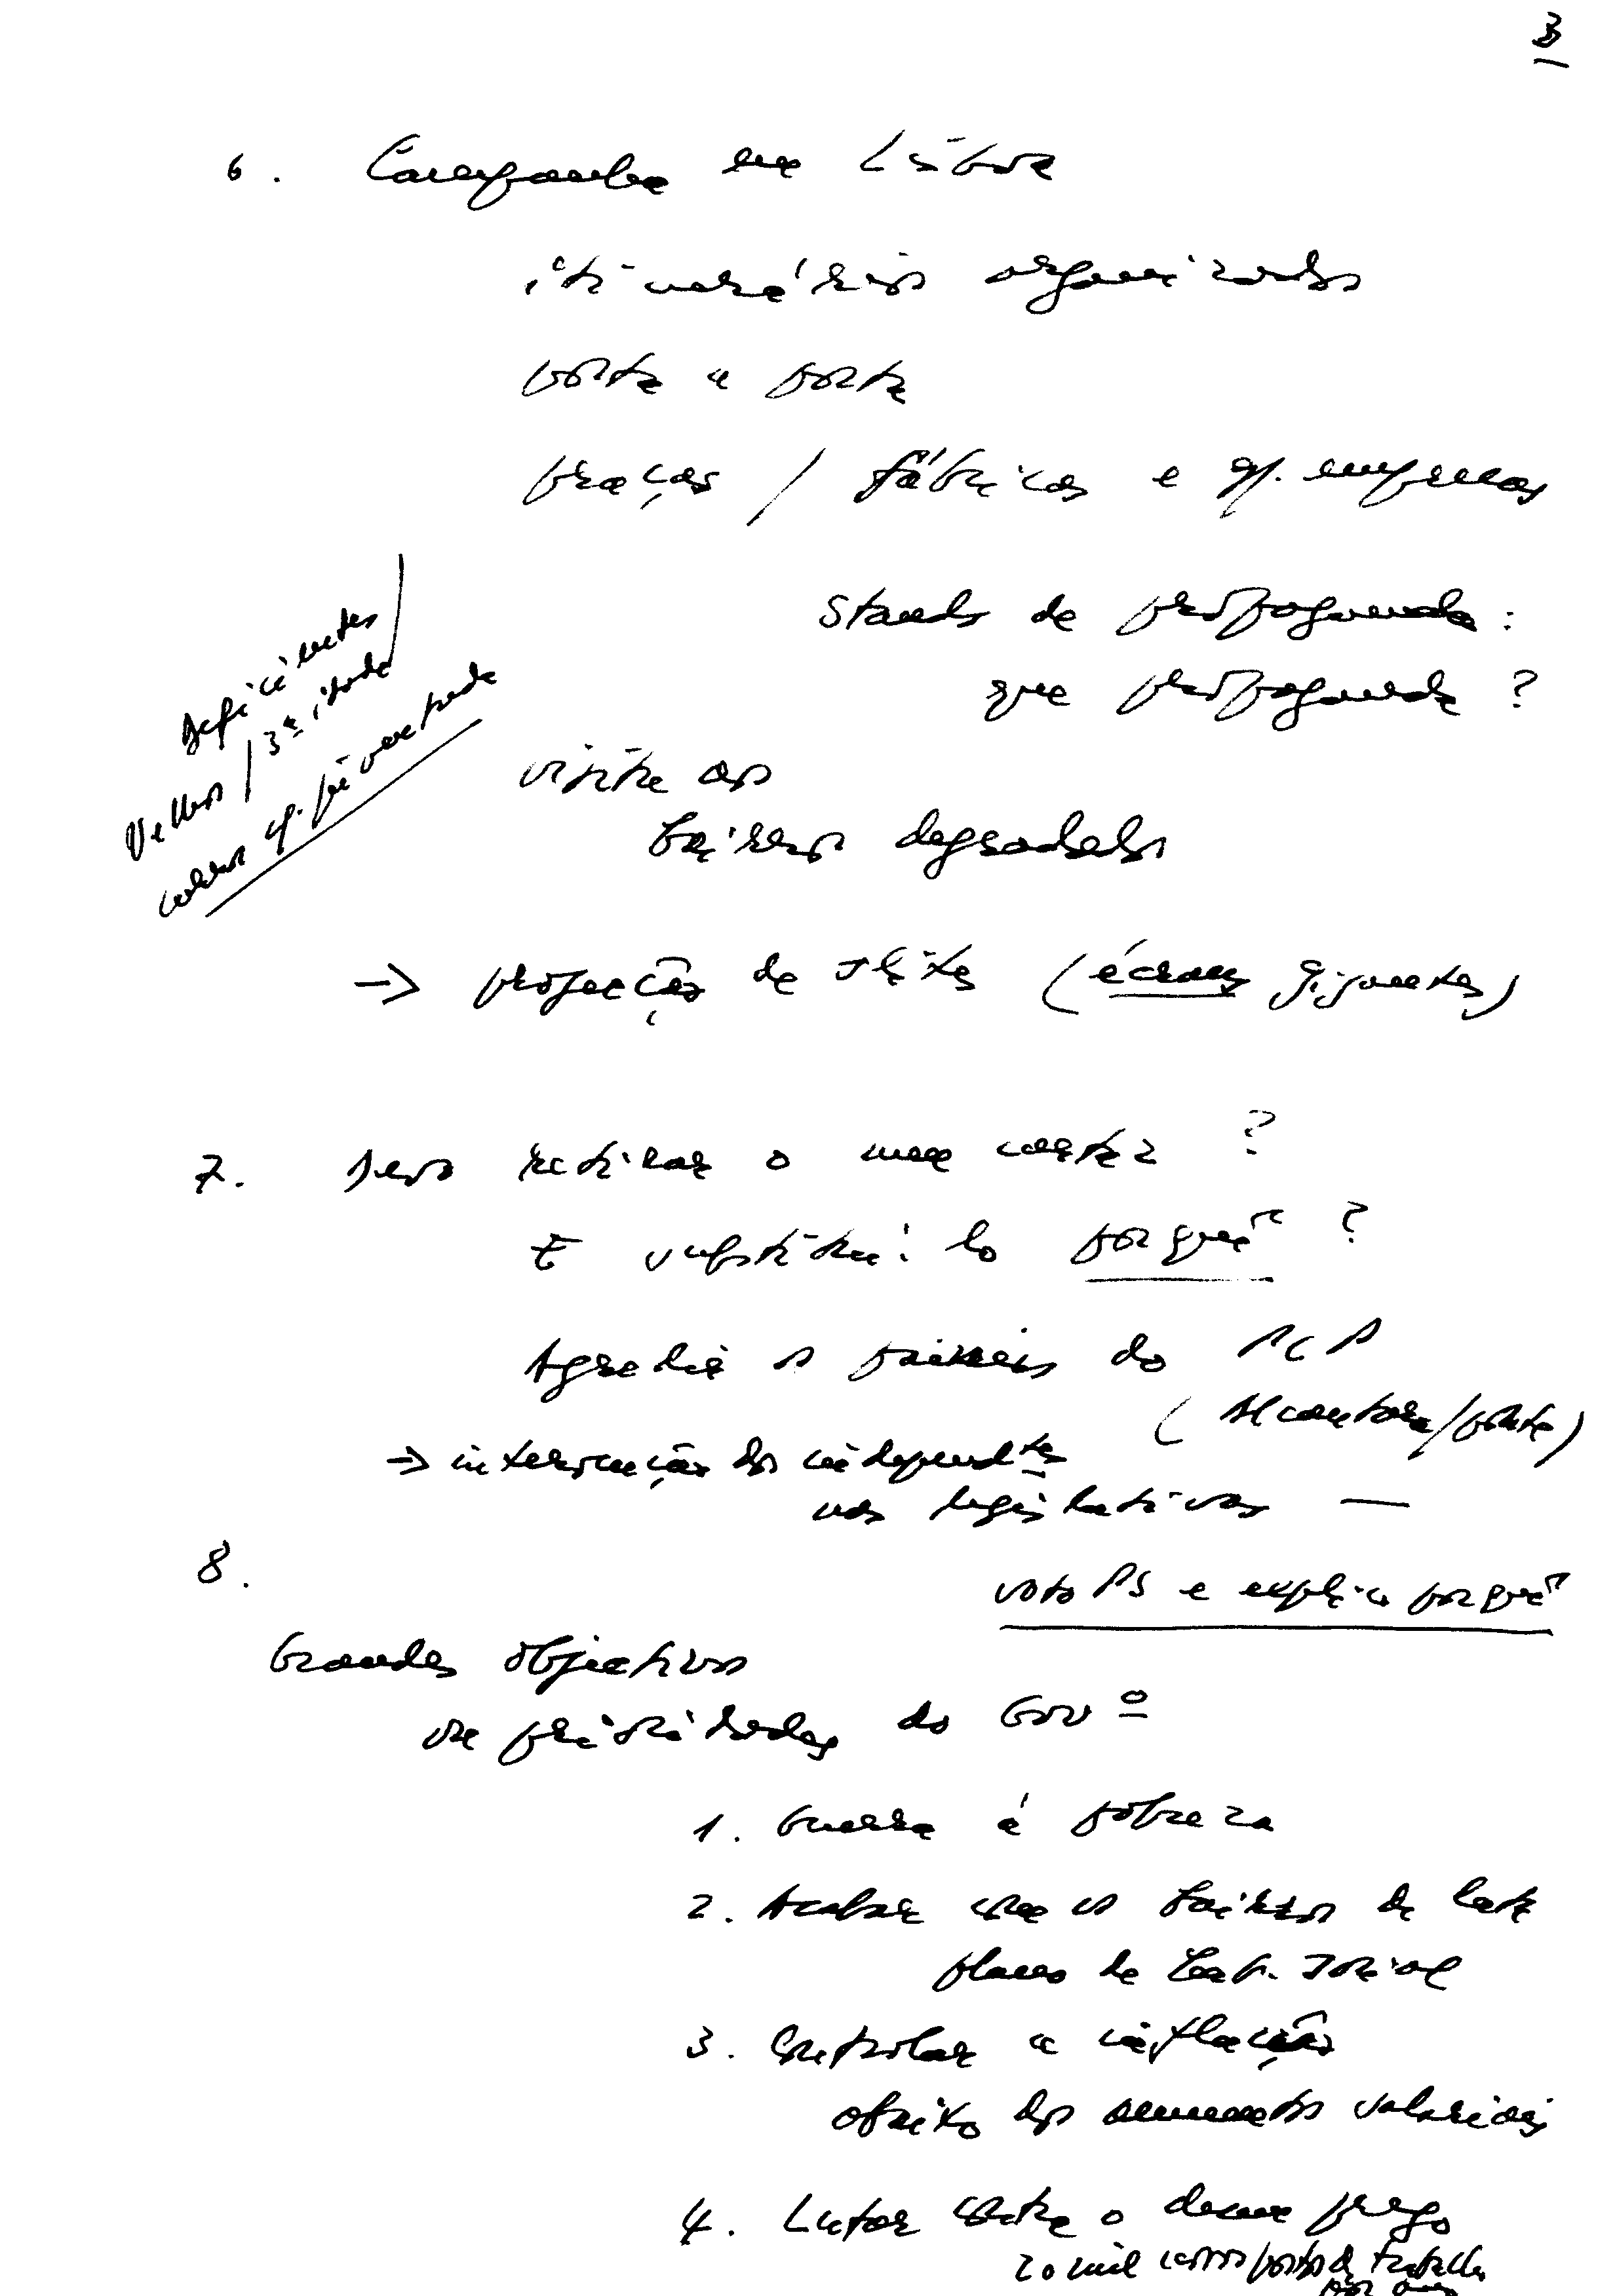 3
6. Campanha em Lisboa
itinerários organizados
porta a porta
praças / fábricas e gr. empresas
Stands de propaganda:
que propaganda?
Deficientes
Velhos / 3ª idade
visita aos
bairros degradados
→ projecção de (écrans gigantes)
7. Devo retirar o meu cartaz?
E substituí-lo porquê?
Agredir os painéis do PCP
(Alcântara/ponte)
→ intervenção dos independtes
nas legislativas —
8.
voto PS e explica porquê
Grandes objectivos
ou prioridades do Govº
1. Guerra à pobreza
2. Acabar com os bairros de lata
plano de hab. social
3. Controlar a inflação
abaixo dos aumentos salariais
4. Lutar contra o desemprego
20 mil novos postos de trabalho
por ano